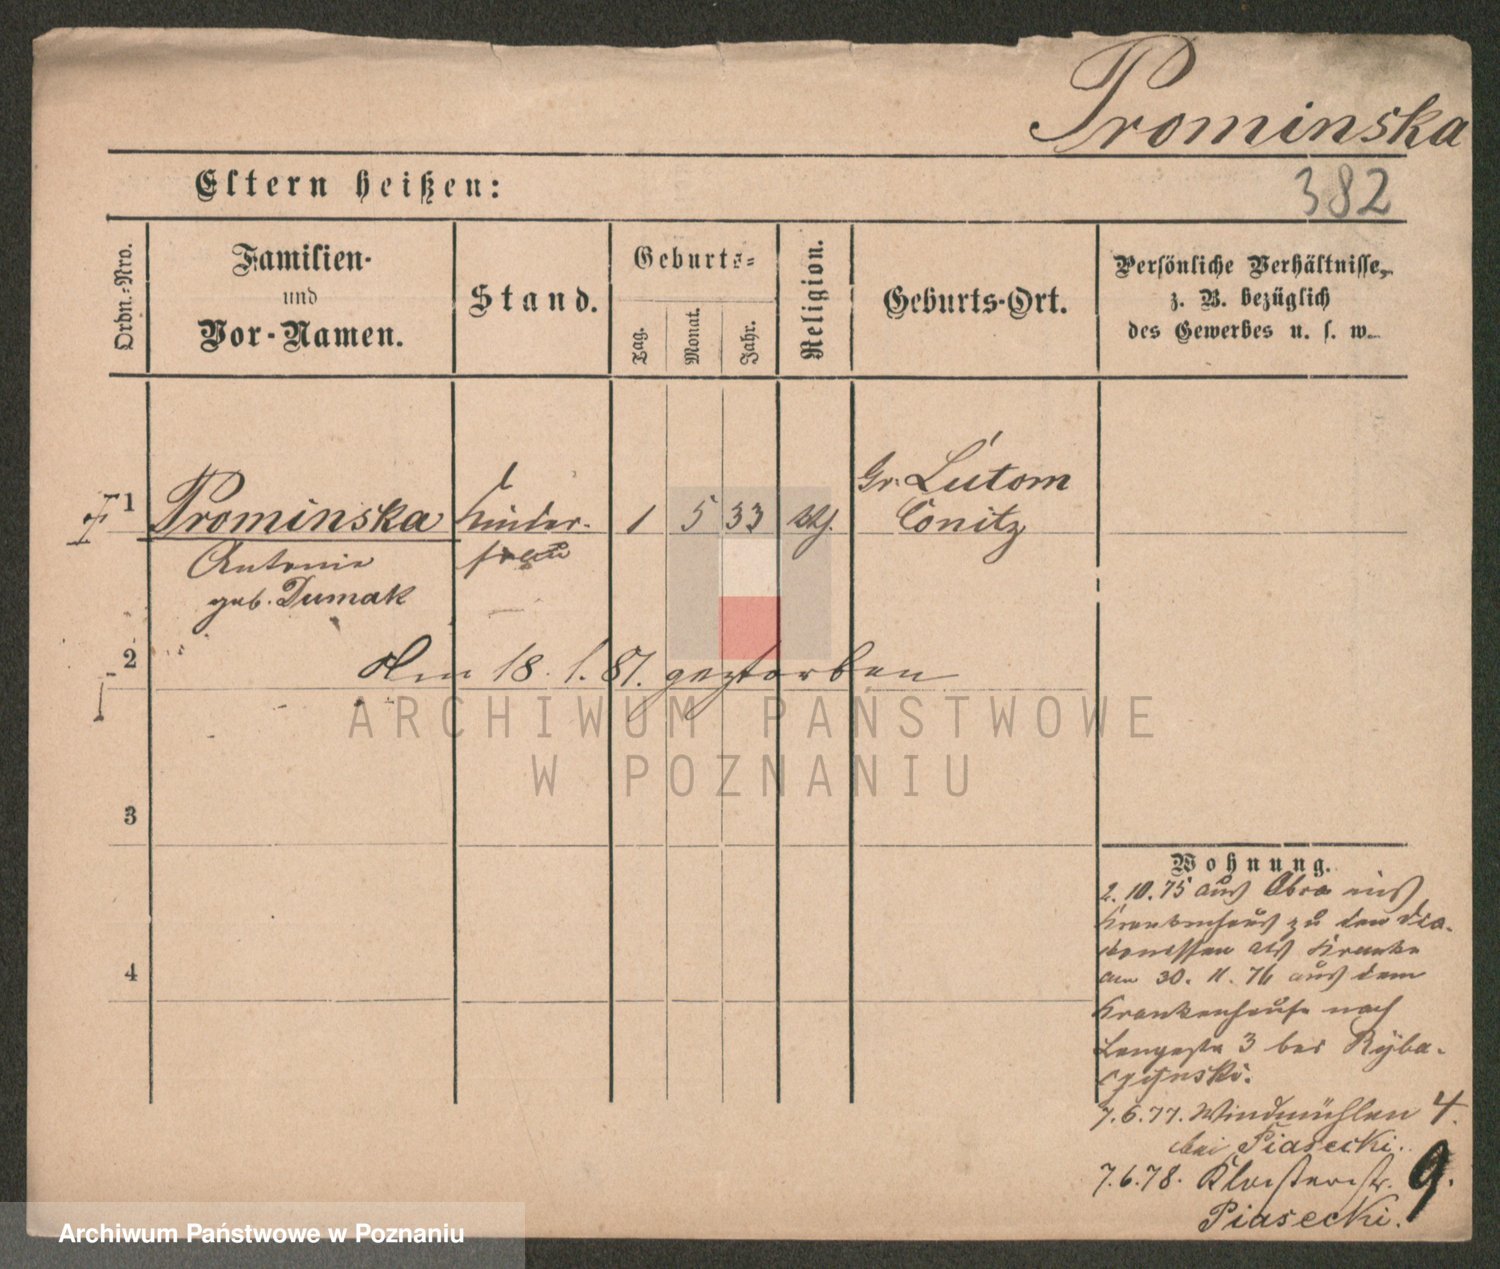 Prominska
382
Eltern heißen:
Ordn.-Nro.
Familien-
und
Vor-Namen.
Stand.
Geburts-
Tag.
Monat.
Jahr.
Religion.
Geburts-Ort.
Persönliche Verhältnisse,
z. B. bezüglich
des Gewerbes u. s. w.
1
Prominska
Antonie
geb. Dumak
Kinder-
frau
1 5 33
Gr. Lutom
Conitz
2
Am 18. 1. 87. gestorben
3
4
Wohnung.
2. 10. 75 aus Obra ins
Krankenhaus zu den Dia-
konissen als Kranke
am 30. 11. 76 aus dem
Krankenhause nach
Langestr 3 bei Ryba-
7. 6. 77. Windmühlen 4.
bei Piasecki.
7. 6. 78. Klosterstr. 9.
Piasecki.
ARCHIWUM PAŃSTWOWE
W POZNANIU
Archiwum Państwowe w Poznaniu